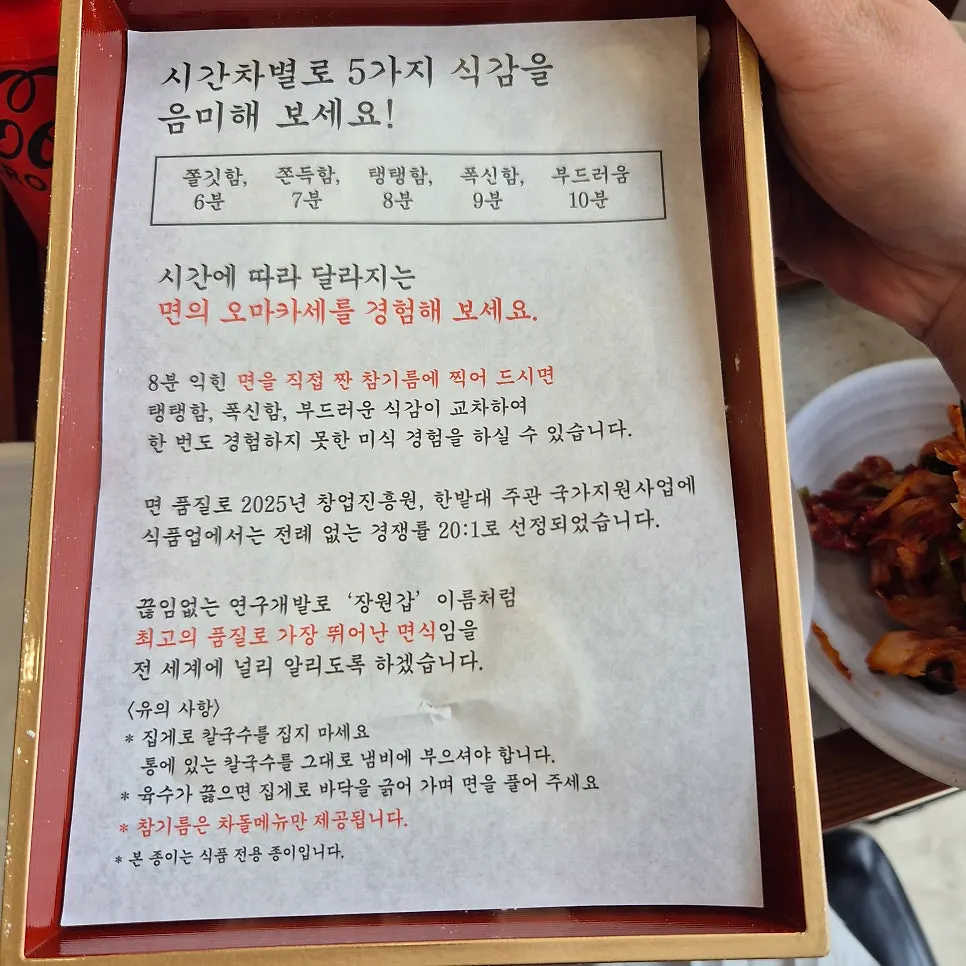 시간차별로 5가지 식감을
음미해 보세요!
쫄깃함, 쫀득함, 탱탱함, 폭신함, 부드러움
6분 7분 8분 9분 10분
시간에 따라 달라지는
면의 오마카세를 경험해 보세요.
8분 익힌 면을 직접 짠 참기름에 찍어 드시면
탱탱함, 폭신함, 부드러운 식감이 교차하여
한 번도 경험하지 못한 미식 경험을 하실 수 있습니다.
면 품질로 2025년 창업진흥원, 한밭대 주관 국가지원사업에
식품업에서는 전례 없는 경쟁률 20:1로 선정되었습니다.
끊임없는 연구개발로 ‘장원갑’ 이름처럼
최고의 품질로 가장 뛰어난 면식임을
전 세계에 널리 알리도록 하겠습니다.
<유의 사항>
* 집게로 칼국수를 집지 마세요
통에 있는 칼국수를 그대로 냄비에 부으셔야 합니다.
* 육수가 끓으면 집게로 바닥을 긁어 가며 면을 풀어 주세요
* 참기름은 차돌메뉴만 제공됩니다.
* 본 종이는 식품 전용 종이입니다.